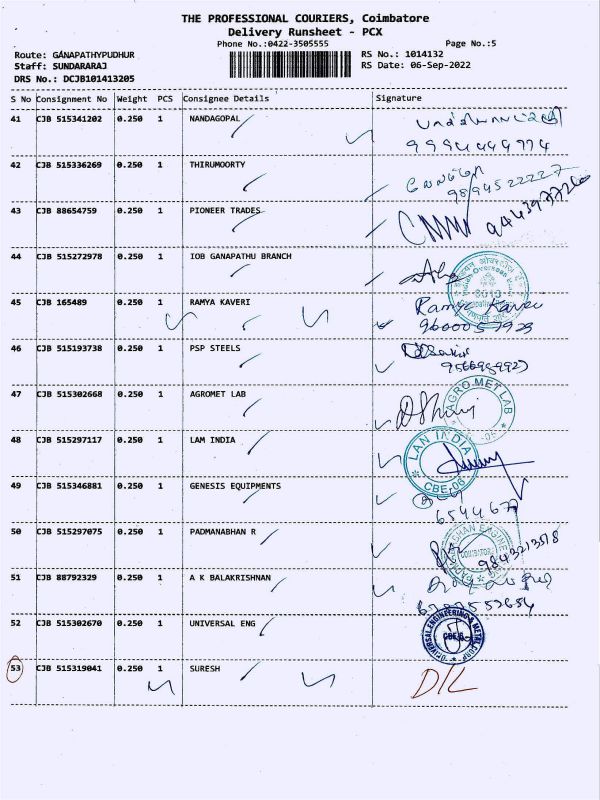 THE PROFESSIONAL COURIERS, Coimbatore
Delivery Runsheet - PCX
Phone No.:0422-3505555 Page No.:5
Route: GANAPATHYPUDHUR RS No.: 1014132
Staff: SUNDARARAJ RS Date: 06-Sep-2022
DRS No.: DCJB101413205
S No Consignment No Weight PCS Consignee Details Signature
41 CJB 515341202 0.250 1 NANDAGOPAL
9994444974
42 CJB 515336269 0.250 1 THIRUMOORTY
9894522227
43 CJB 88654759 0.250 1 PIONEER TRADES
44 CJB 515272978 0.250 1 IOB GANAPATHU BRANCH
45 CJB 165489 0.250 1 RAMYA KAVERI Ramya Kaveri
9600057923
46 CJB 515193738 0.250 1 PSP STEELS
47 CJB 515302668 0.250 1 AGROMET LAB AGRO MET LAB
48 CJB 515297117 0.250 1 LAM INDIA LAN INDIA
CBE-06
49 CJB 515346881 0.250 1 GENESIS EQUIPMENTS
50 CJB 515297075 0.250 1 PADMANABHAN R
9843213518
51 CJB 88792329 0.250 1 A K BALAKRISHNAN
52 CJB 515302670 0.250 1 UNIVERSAL ENG UNIVERSAL ENGINEERING & METAL CORP
CBE-6
53 CJB 515319041 0.250 1 SURESH D/L